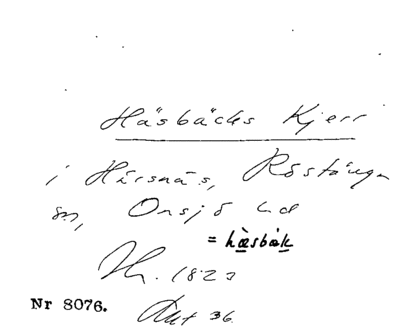 Häsbäcks Kjerr
i Hårsnäs, Röstånga
sn, Onsjö hd
= hæsbák
Th. 1823
Nr 8076. Akt 36